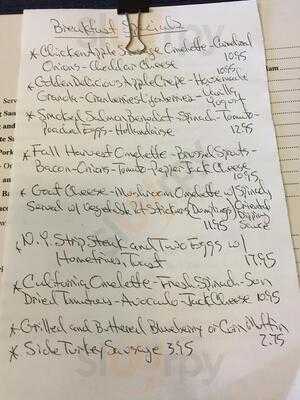 Breakfast Specials
* Chicken Apple Sausage Omelette - Caramelized
Onions - Cheddar Cheese 10.95
* Golden Delicious Apple Crepe - Housemade 10.95
Granola - Cranberries - Vanilla
Yogurt
* Smoked Salmon Benedict - Spinach - Tomato -
Poached Eggs - Hollandaise 12.95
* Fall Harvest Omelette - Brussel Sprouts -
Bacon - Onions - Tomato - Pepper Jack Cheese 10.95
* Goat Cheese - Mushroom Omelette w/ Spinach
Served w/ Vegetable Pot Stickers (Dumplings) w/ Oriental Dipping Sauce 11.95
* N.Y. Strip Steak and Two Eggs w/
Homefries, Toast 17.95
* California Omelette - Fresh Spinach - Sun
Dried Tomatoes - Avocado - Jack Cheese 10.95
* Grilled and Buttered Blueberry or Corn Muffin 2.75
* Side Turkey Sausage 3.95